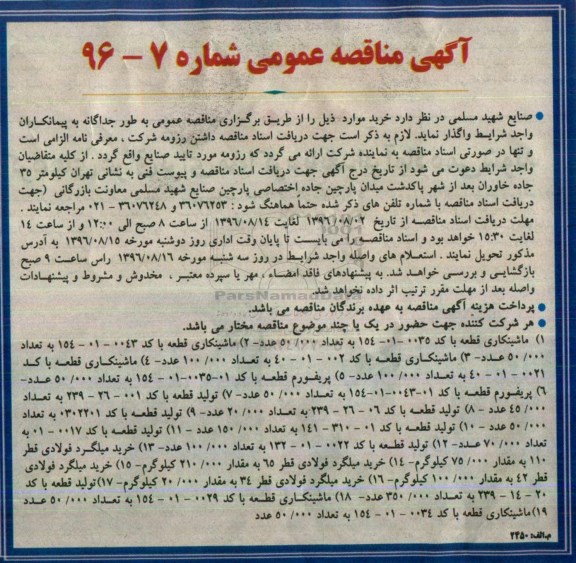 آگهی مناقصه عمومی شماره ۷ – ۹۶
● صنایع شهید مسلمی در نظر دارد خرید موارد ذیل را از طریق برگزاری مناقصه عمومی به طور جداگانه به پیمانکاران
واجد شرایط واگذار نماید. لازم به ذکر است جهت دریافت اسناد مناقصه داشتن رزومه شرکت ، معرفی نامه الزامی است
و تنها در صورتی اسناد مناقصه به نماینده شرکت ارائه می گردد که رزومه مورد تایید صنایع واقع گردد . از کلیه متقاضیان
واجد شرایط دعوت می شود از تاریخ درج آگهی جهت دریافت اسناد مناقصه و پیوست فنی به نشانی تهران کیلومتر ۳۵
جاده خاوران بعد از شهر پاکدشت میدان پارچین جاده اختصاصی پارچین صنایع شهید مسلمی معاونت بازرگانی (جهت
دریافت اسناد مناقصه با شماره تلفن های ذکر شده حتماً هماهنگ شود : ۳۶۰۷۶۲۵۳ و ۳۶۰۷۶۲۴۸ - ۰۲۱ مراجعه نمایند .
مهلت دریافت اسناد مناقصه از تاریخ ۱۳۹۶/۰۸/۰۲ لغایت ۱۳۹۶/۰۸/۱۴ از ساعت ۸ صبح الی ۱۲:۰۰ و از ساعت ۱۴
لغایت ۱۵:۳۰ خواهد بود و اسناد مناقصه را می بایست تا پایان وقت اداری روز دوشنبه مورخه ۱۳۹۶/۰۸/۱۵ به آدرس
مذکور تحویل نمایند . استعلام های واصله واجد شرایط در روز سه شنبه مورخه ۱۳۹۶/۰۸/۱۶ راس ساعت ۹ صبح
بازگشایی و بررسی خواهد شد. به پیشنهادهای فاقد امضاء ، مهر یا سپرده معتبر ، مخدوش و مشروط و پیشنهادات
واصله بعد از مهلت مقرر ترتیب اثر داده نخواهد شد.
ParsNamadData
● پرداخت هزینه آگهی مناقصه به عهده برندگان مناقصه می باشد.
● هر شرکت کننده جهت حضور در یک یا چند موضوع مناقصه مختار می باشد.
۱) ماشینکاری قطعه با کد ۰۰۳۵ – ۰۱ – ۱۵۴ به تعداد ۵۰/۰۰۰ عدد- ۲) ماشینکاری قطعه با کد ۰۰۴۳ – ۰۱ – ۱۵۴ به تعداد
۵۰/۰۰۰ عدد- ۳) ماشینکاری قطعه با کد ۰۰۲ – ۰۱ – ۴۰ به تعداد ۱۰۰/۰۰۰ عدد- ۴) ماشینکاری قطعه با کد
۰۰۲۱ – ۰۱ – ۴۰ به تعداد ۱۰۰/۰۰۰ عدد- ۵) پریفورم قطعه با کد ۰۱-۰۰۳۵-۰۱-۱۵۴ به تعداد ۵۰/۰۰۰ عدد-
۶) پریفورم قطعه با کد ۰۱-۰۰۴۳-۰۱-۱۵۴ به تعداد ۵۰/۰۰۰ عدد- ۷) تولید قطعه با کد ۰۰۱ – ۲۶ – ۲۳۹ به تعداد
۴۵/۰۰۰ عدد – ۸) تولید قطعه با کد ۰۶ – ۲۶ – ۲۳۹ به تعداد ۲۰/۰۰۰ عدد- ۹) تولید قطعه با کد ۰۳۰۲۲۰۱ به تعداد
۵۰/۰۰۰ عدد – ۱۰) تولید قطعه با کد ۰۱ – ۳۱۰ – ۱۴۱ به تعداد ۱۵۰/۰۰۰ عدد – ۱۱) تولید قطعه با کد ۰۰۱۷ – ۰۱ به
تعداد ۷۰/۰۰۰ عدد- ۱۲) تولید قطعه با کد ۰۰۲۲ – ۰۱ – ۱۳۲ به تعداد ۱۰۰/۰۰۰ عدد- ۱۳) خرید میلگرد فولادی قطر
۱۱۰ به مقدار ۷۵/۰۰۰ کیلوگرم- ۱۴) خرید میلگرد فولادی قطر ۶۵ به مقدار ۲۱۰/۰۰۰ کیلوگرم- ۱۵) خرید میلگرد فولادی
قطر ۴۲ به مقدار ۱۰۰/۰۰۰ کیلوگرم- ۱۶) خرید میلگرد فولادی قطر ۳۴ به مقدار ۲۰/۰۰۰ کیلوگرم- ۱۷)تولید قطعه با کد
۲۰ – ۱۴ – ۲۳۹ به تعداد ۳۵۰/۰۰۰ عدد- ۱۸) ماشینکاری قطعه با کد ۰۰۲۹ – ۰۱ – ۱۵۴ به تعداد ۵۰/۰۰۰ عدد
۱۹)ماشینکاری قطعه با کد ۰۰۳۴ – ۰۱ – ۱۵۴ به تعداد ۵۰/۰۰۰ عدد
م.الف: ۲۴۵۰